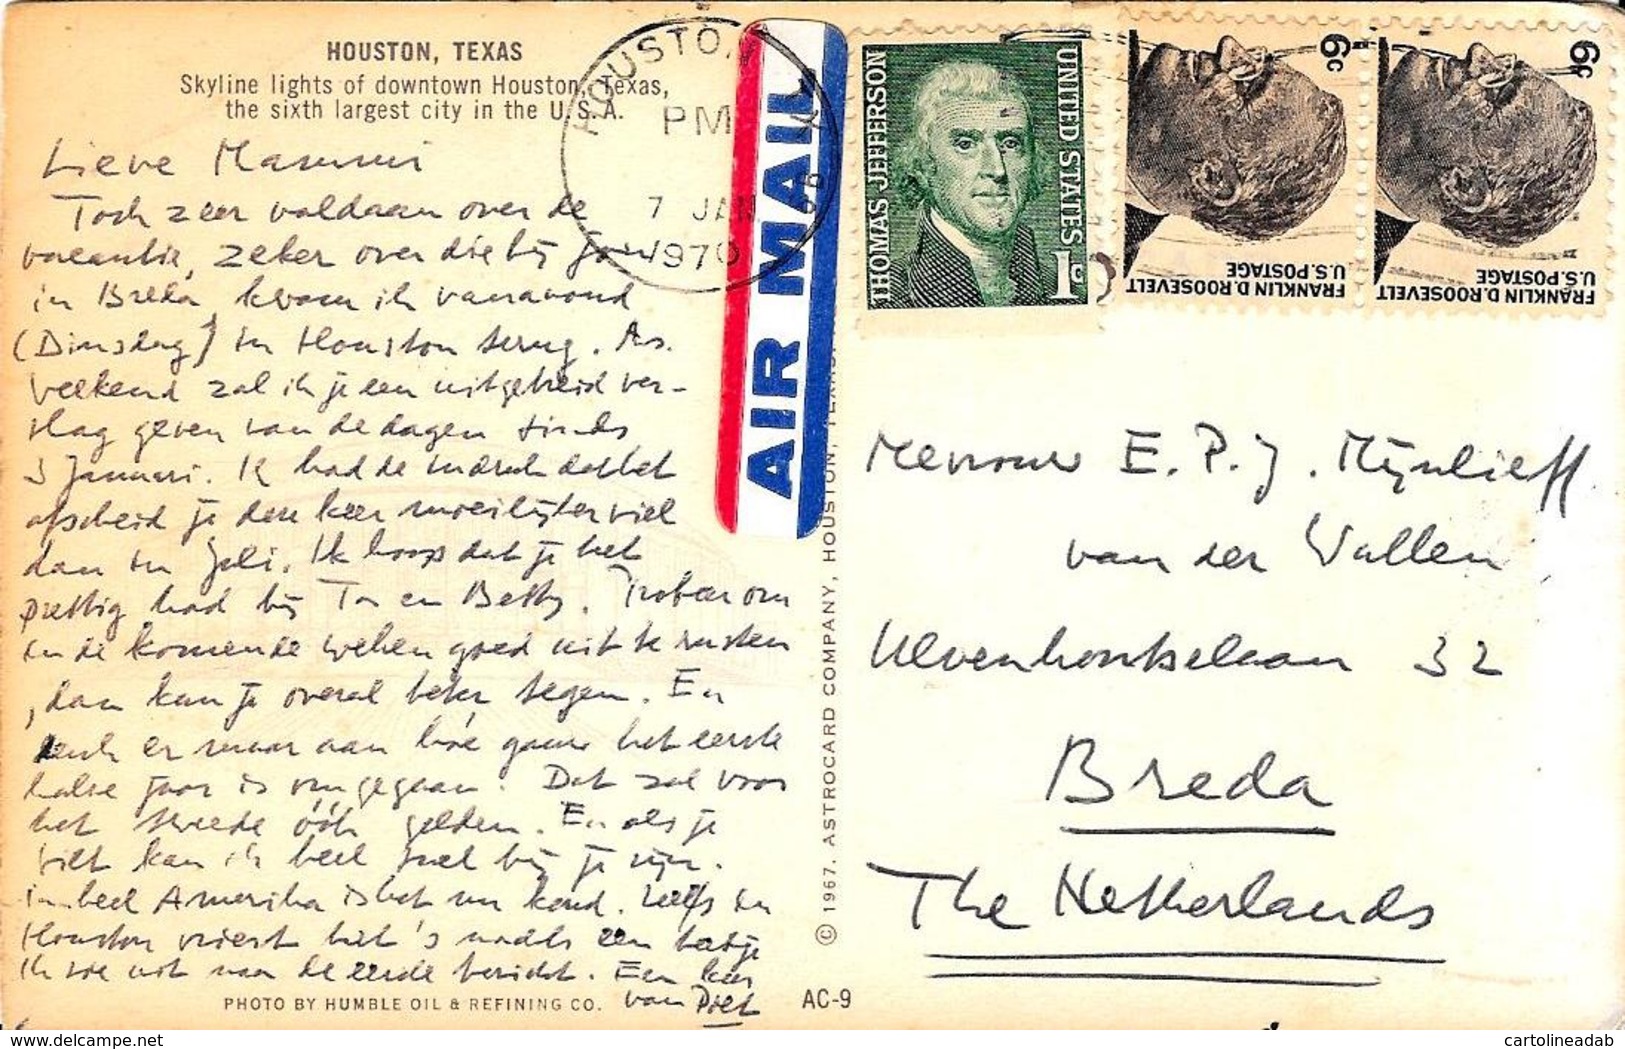 HOUSTON, TEXAS
Skyline lights of downtown Houston, Texas,
the sixth largest city in the U.S.A.
Lieve Mammi
Toch zeer voldaan over de
vacantie, zeker over die bij jou
in Breda kwam ik vanavond
(Dinsdag) in Houston terug. As.
weekend zal ik je een uitgebreid ver-
slag geven van de dagen sinds
3 Januari. Ik had de indruk dat het
afscheid je deze keer moeilijker viel
dan in Juli. Ik hoop dat je het
prettig had bij Ton en Betty. Probeer om
in de komende weken goed uit te rusten
, dan kan je overal beter tegen. En
denk er maar aan hoe gauw het eerste
halve jaar is omgegaan. Dat zal voor
het tweede óók gelden. En als je
wilt kan ik heel snel bij je zijn.
In heel Amerika is het nu koud. Zelfs in
Houston vriest het 's nachts een beetje
Ik zie uit naar de eerste bericht. Een kus
van Piet
PHOTO BY HUMBLE OIL & REFINING CO.
AC-9
© 1967. ASTROCARD COMPANY, HOUSTON, TEXAS.
HOUSTON
PM
7 JAN
1970
AIR MAIL
THOMAS JEFFERSON
UNITED STATES
1c
6c
FRANKLIN D. ROOSEVELT
U.S. POSTAGE
6c
FRANKLIN D. ROOSEVELT
U.S. POSTAGE
Mevrouw E. P. J. Mijnlieff
van der Wallen
Ulvenhoutselaan 32
Breda
The Netherlands
cartolineadab